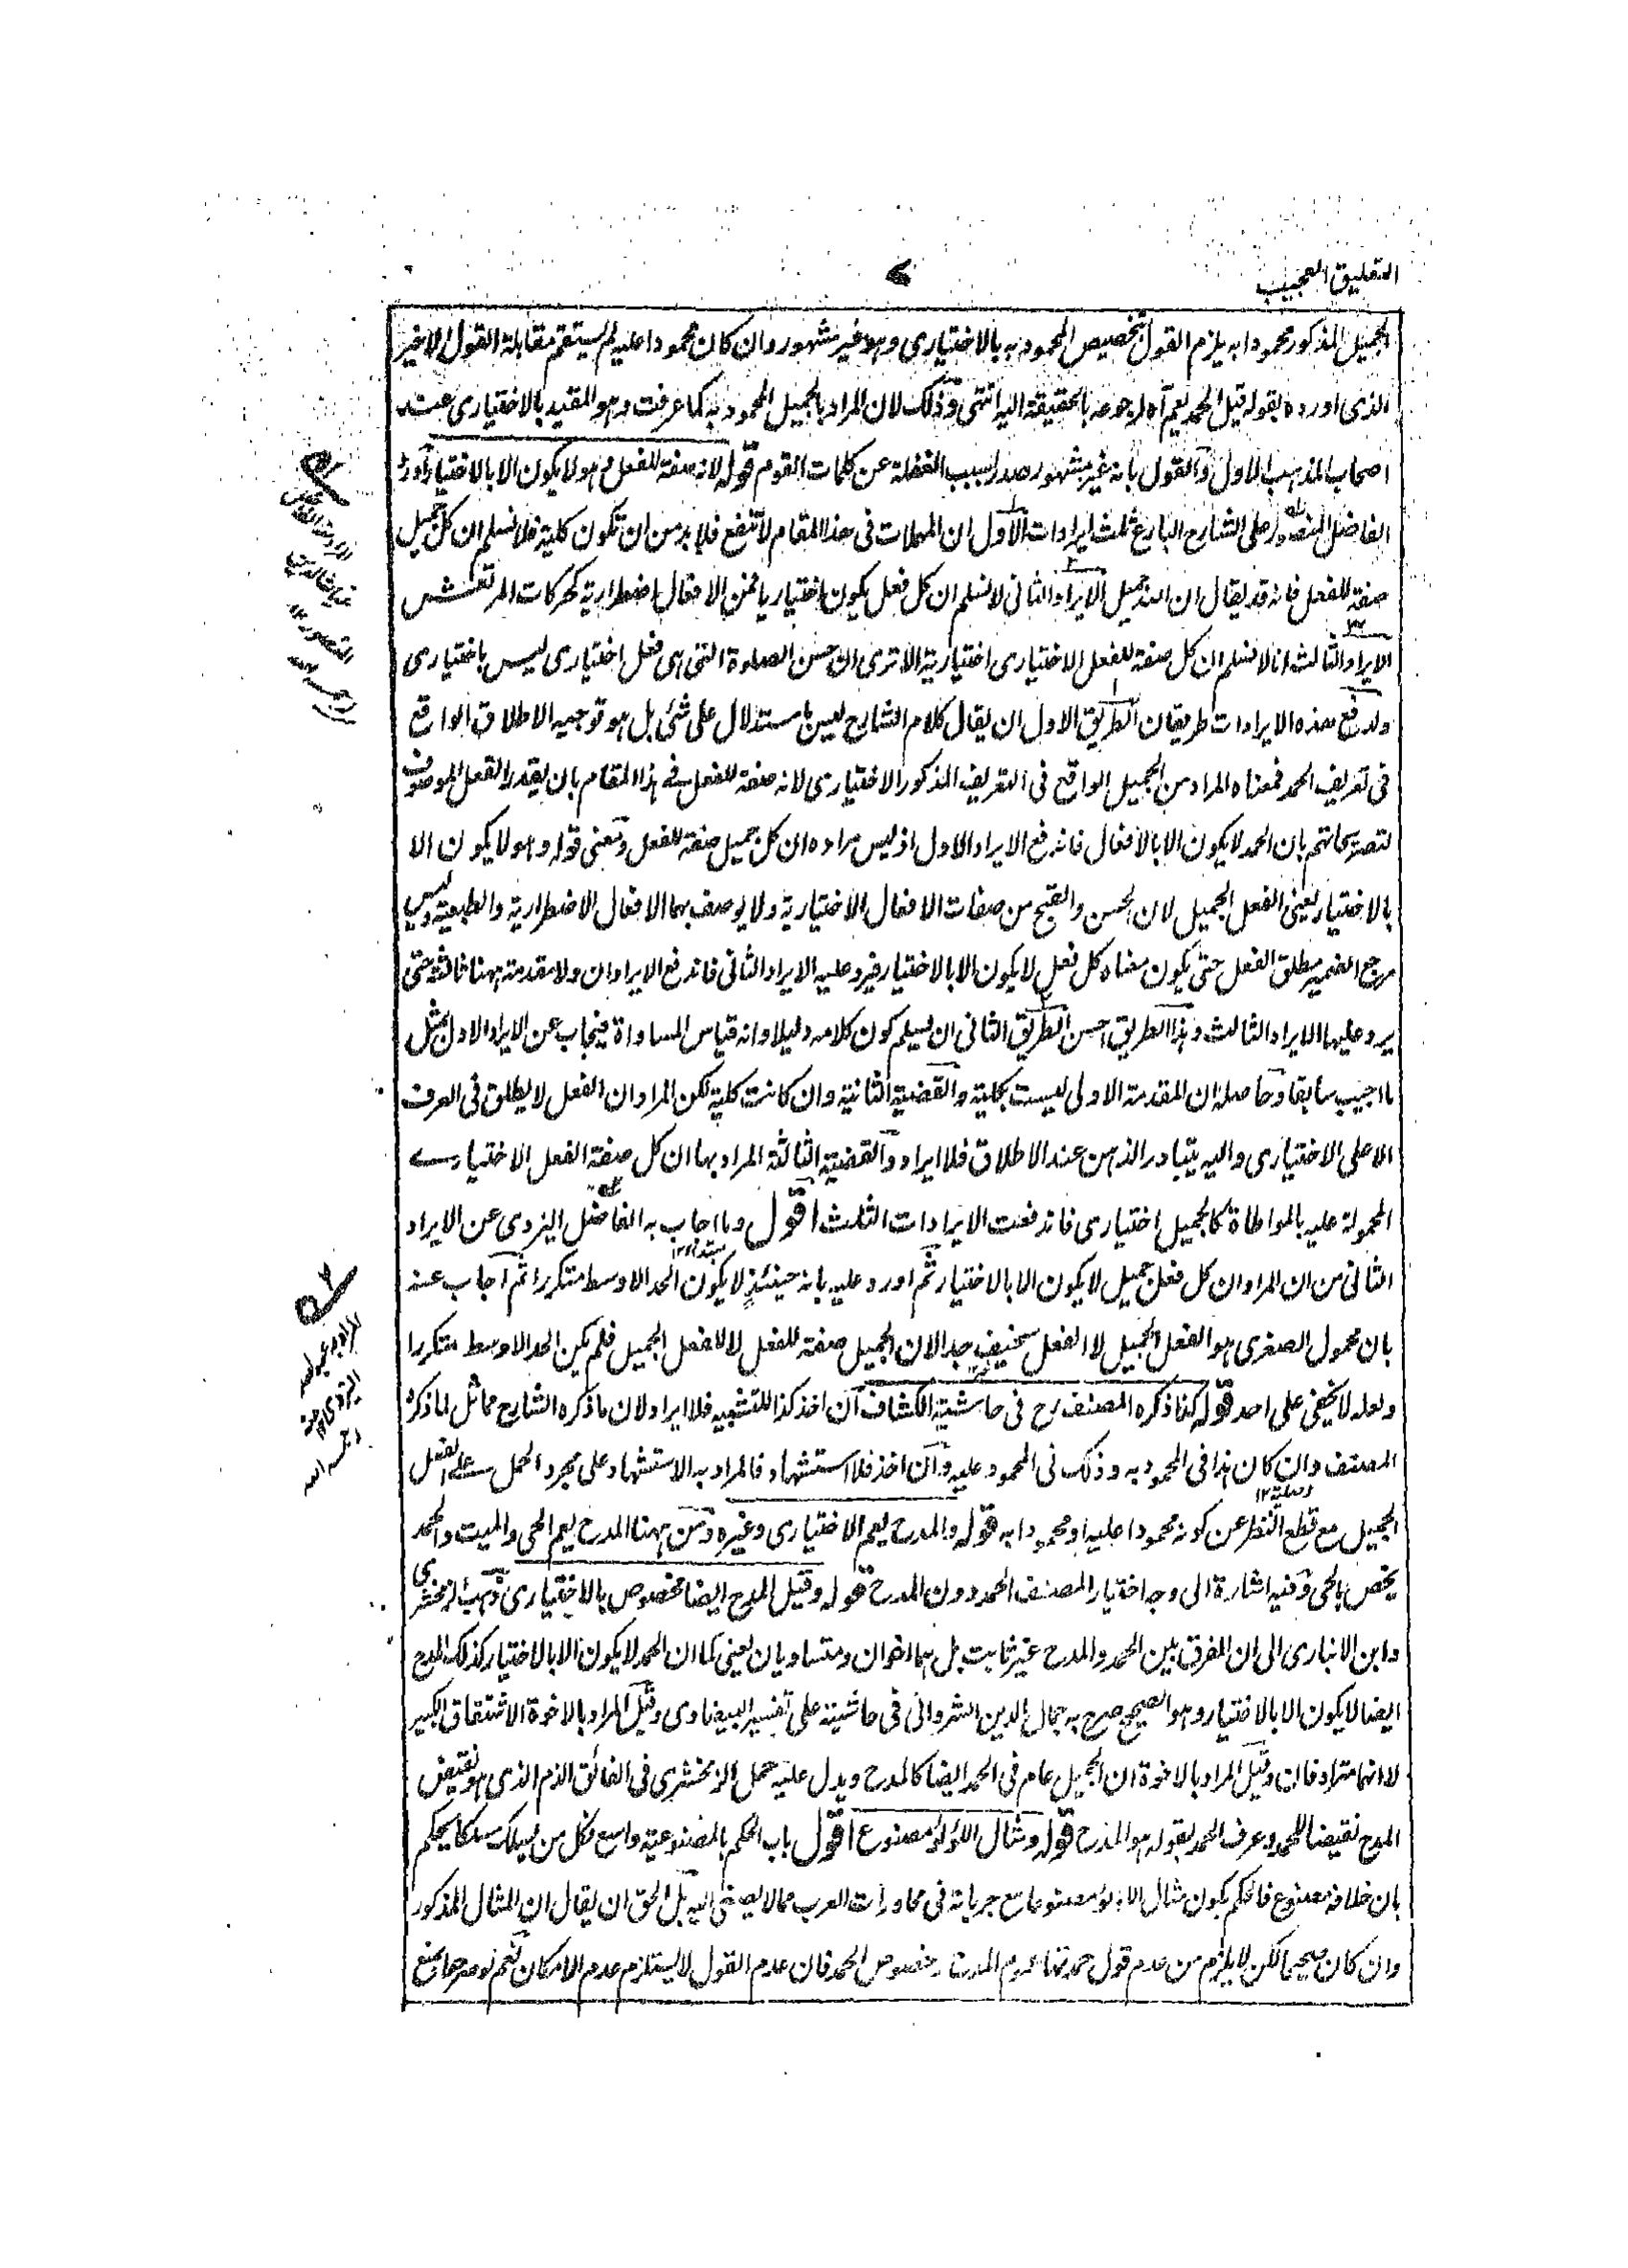 التعليق العجيب
٧
الجميل المذكور محمودا به يلزم القول بتخصيص المحمود به بالاختيارى وهو غير مشهور وان كان محمودا عليه لم يستقم مقابلة القول الاخير
الذى اورده بقوله قيل الحمد يعم آه لرجوعه بالحقيقة اليه انتهى وذلك لان المراد بالجميل المحمود به كما عرفت وهو المقيد بالاختيارى عند
اصحاب المذهب الاول والقول بانه غير مشهور صدر بسبب الغفلة عن كلمات القوم قوله لانه صفة للفعل وهو لا يكون الا بالاختيار اورد
الفاضل على الشارح البارع ثلث ايرادات الاول ان المهملات فى هذا المقام لا تنفع فلابد من ان تكون كلية فلا نسلم ان كل جميل
صفة للفعل فانه قد يقال ان الله جميل الايراد الثانى لا نسلم ان كل فعل يكون اختياريا فمن الافعال اضطرارية كحركات المرتعش
الايراد الثالث انا لا نسلم ان كل صفة للفعل الاختيارى اختيارية الا ترى ان حسن الصلوة التى هى فعل اختيارى ليس باختيارى
ولدفع هذه الايرادات طريقان الطريق الاول ان يقال كلام الشارح ليس باستدلال على شئ بل هو توجيه الاطلاق الواقع
فى تعريف الحمد فمعناه المراد من الجميل الواقع فى التعريف المذكور الاختيارى لانه صفة للفعل فى هذا المقام بان يقدر الفعل الموصوف
لتصريحاتهم بان الحمد لا يكون الا بالافعال فاندفع الايراد الاول اذ ليس مراده ان كل جميل صفة للفعل ومعنى قوله وهو لا يكون الا
بالاختيار يعنى الفعل الجميل لان الحسن والقبح من صفات الافعال الاختيارية ولا يوصف بهما الافعال الاضطرارية والطبعية وليس
مرجع الضمير مطلق الفعل حتى يكون معناه كل فعل لا يكون الا بالاختيار فيرد عليه الايراد الثانى فاندفع الايرادان ولا مقدمة ههنا ثالثة حتى
يرد عليها الايراد الثالث وهذا الطريق احسن الطريق الثانى ان يسلم كون كلامه دليلا وانه قياس المساواة فيجاب عن الايراد الاول بمثل
ما اجيب سابقا وحاصله ان المقدمة الاولى ليست بكلية والقضية الثانية وان كانت كلية لكن المراد ان الفعل لا يطلق فى العرف
الا على الاختيارى واليه يتبادر الذهن عند الاطلاق فلا ايراد والقضية الثالثة المراد بها ان كل صفة الفعل الاختيارى
المحمولة عليه بالمواطاة كالجميل اختيارى فاندفعت الايرادات الثلث اقول وما اجاب به الفاضل اليزدى عن الايراد
الثانى من ان المراد ان كل فعل جميل لا يكون الا بالاختيار ثم اورد عليه بانه حينئذ لا يكون الحد الاوسط متكررا ثم اجاب عنه
بان محمول الصغرى هو الفعل الجميل لا الفعل سخيف جدا لان الجميل صفة للفعل لا للفعل الجميل فلم يكن الحد الاوسط متكررا
ولعله لا يخفى على احد قوله كذا ذكره المصنف رح فى حاشية الكشاف ان اخذ كذا للتشبيه فلا ايراد لان ما ذكره الشارح مماثل لما ذكره
المصنف وان كان هذا فى المحمود به وذلك فى المحمود عليه وان اخذ فلا استشهاد فالمراد به الاستشهاد على مجرد الحمل على الفعل
الجميل مع قطع النظر عن كونه محمودا عليه او محمودا به قوله والمدح يعم الاختيارى وغيره ومن ههنا المدح يعم الحى والميت والحمد
يختص بالحى وفيه اشارة الى وجه اختيار المصنف الحمد دون المدح قوله وقيل المدح ايضا مخصوص بالاختيارى ذهب الزمخشرى
وابن الانبارى الى ان الفرق بين الحمد والمدح غير ثابت بل هما اخوان ومتساويان يعنى كما ان الحمد لا يكون الا بالاختيار كذلك المدح
ايضا لا يكون الا بالاختيار وهو الصحيح صرح به جمال الدين الشروانى فى حاشيته على تفسير البيضاوى وقيل المراد بالاخوة الاشتقاق الكبير
لا انهما مترادفان وقيل المراد بالاخوة ان الجميل عام فى الحمد ايضا كالمدح ويدل عليه حمل الزمخشرى فى الفائق الذم الذى هو نقيض
المدح نقيضا للحمد وعرف الحمد بقوله هو المدح قوله ومثال اللؤلؤ مصنوع اقول باب الحكم بالمصنوعية واسع فكل من يسلك مسلكا يحكم
بان خلافه مصنوع فالحكم بكون مثال اللؤلؤ مصنوعا مع جريانه فى محاورات العرب مما لا يصغى اليه بل الحق ان يقال ان المثال المذكور
وان كان صحيحا لكن لا يلزم من عدم قول حمدتها عموم المدح وخصوص الحمد فان عدم القول لا يستلزم عدم الامكان نعم لو صرحوا بمنع